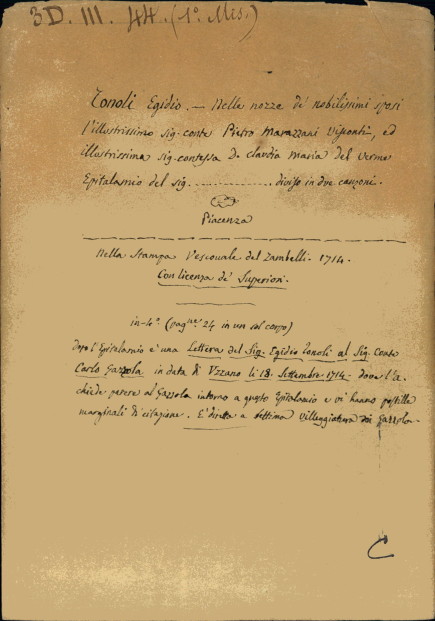 3D. III. 44. (1º. Mis.)
Zonoli Egidio. — Nelle nozze de' nobilissimi sposi
l'illustrissimo sig. conte Pietro Marazzani Visconti, ed
illustrissima sig. contessa D. Claudia Maria Del Verme
Epitalamio del sig. .................. diviso in due canzoni.
Piacenza
Nella Stampa Vescovale del Zambelli. 1714.
Con licenza de' Superiori.
in-4º (pagne. 24 in un sol corpo)
Dopo l'Epitalamio è una Lettera del Sig. Egidio Zonoli al Sig. Conte
Carlo Gazzola in data di Vzzano li 18. Settembre. 1714. dove l'a.
chiede parere al Gazzola intorno a questo Epitalamio e vi hanno postille
marginali di citazione. E' diretta a Settima villeggiatura dei Gazzola.
C